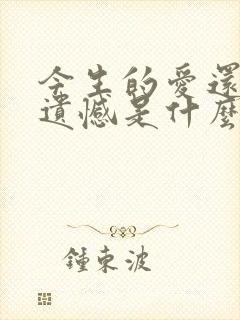 今生的愛還
遺憾是什麼
鍾東波